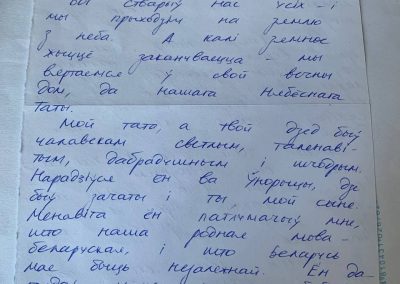 стварыў нас усіх – і
мы прыходзім на зямлю
з неба. А калі зямное
жыццё заканчваецца – мы
вяртаемся ў свой вечны
дом, да нашага Нябеснага
Таты.
Мой тато, а твой дзед быў
чалавекам светлым, таленаві-
тым, дабрадушным і шчодрым.
Нарадзіўся ён ва Ўкорыцы, дзе
быў зачаты і ты, мой сыне.
Менавіта ён патлумачыў мне,
што наша родная мова –
беларуская, і што Беларусь
мае быць незалежнай. Ён да-